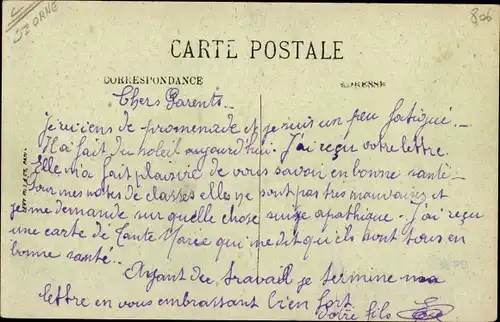 61 ORNE
806
CARTE POSTALE
CORRESPONDANCE
ADRESSE
Chers Parents _
Je reviens de promenade et je suis un peu fatigué. _
Il a fait du soleil aujourd'hui. J'ai reçu votre lettre.
Elle m'a fait plaisir de vous savoir en bonne santé _
Pour mes notes de classes elles ne sont pas très mauvaises et
je me demande sur quelle chose suis je apathique. J'ai reçu
une carte de Tante Marie qui me dit qu'ils sont tous en
bonne santé.
Ayant du travail je termine ma
lettre en vous embrassant bien fort
votre fils